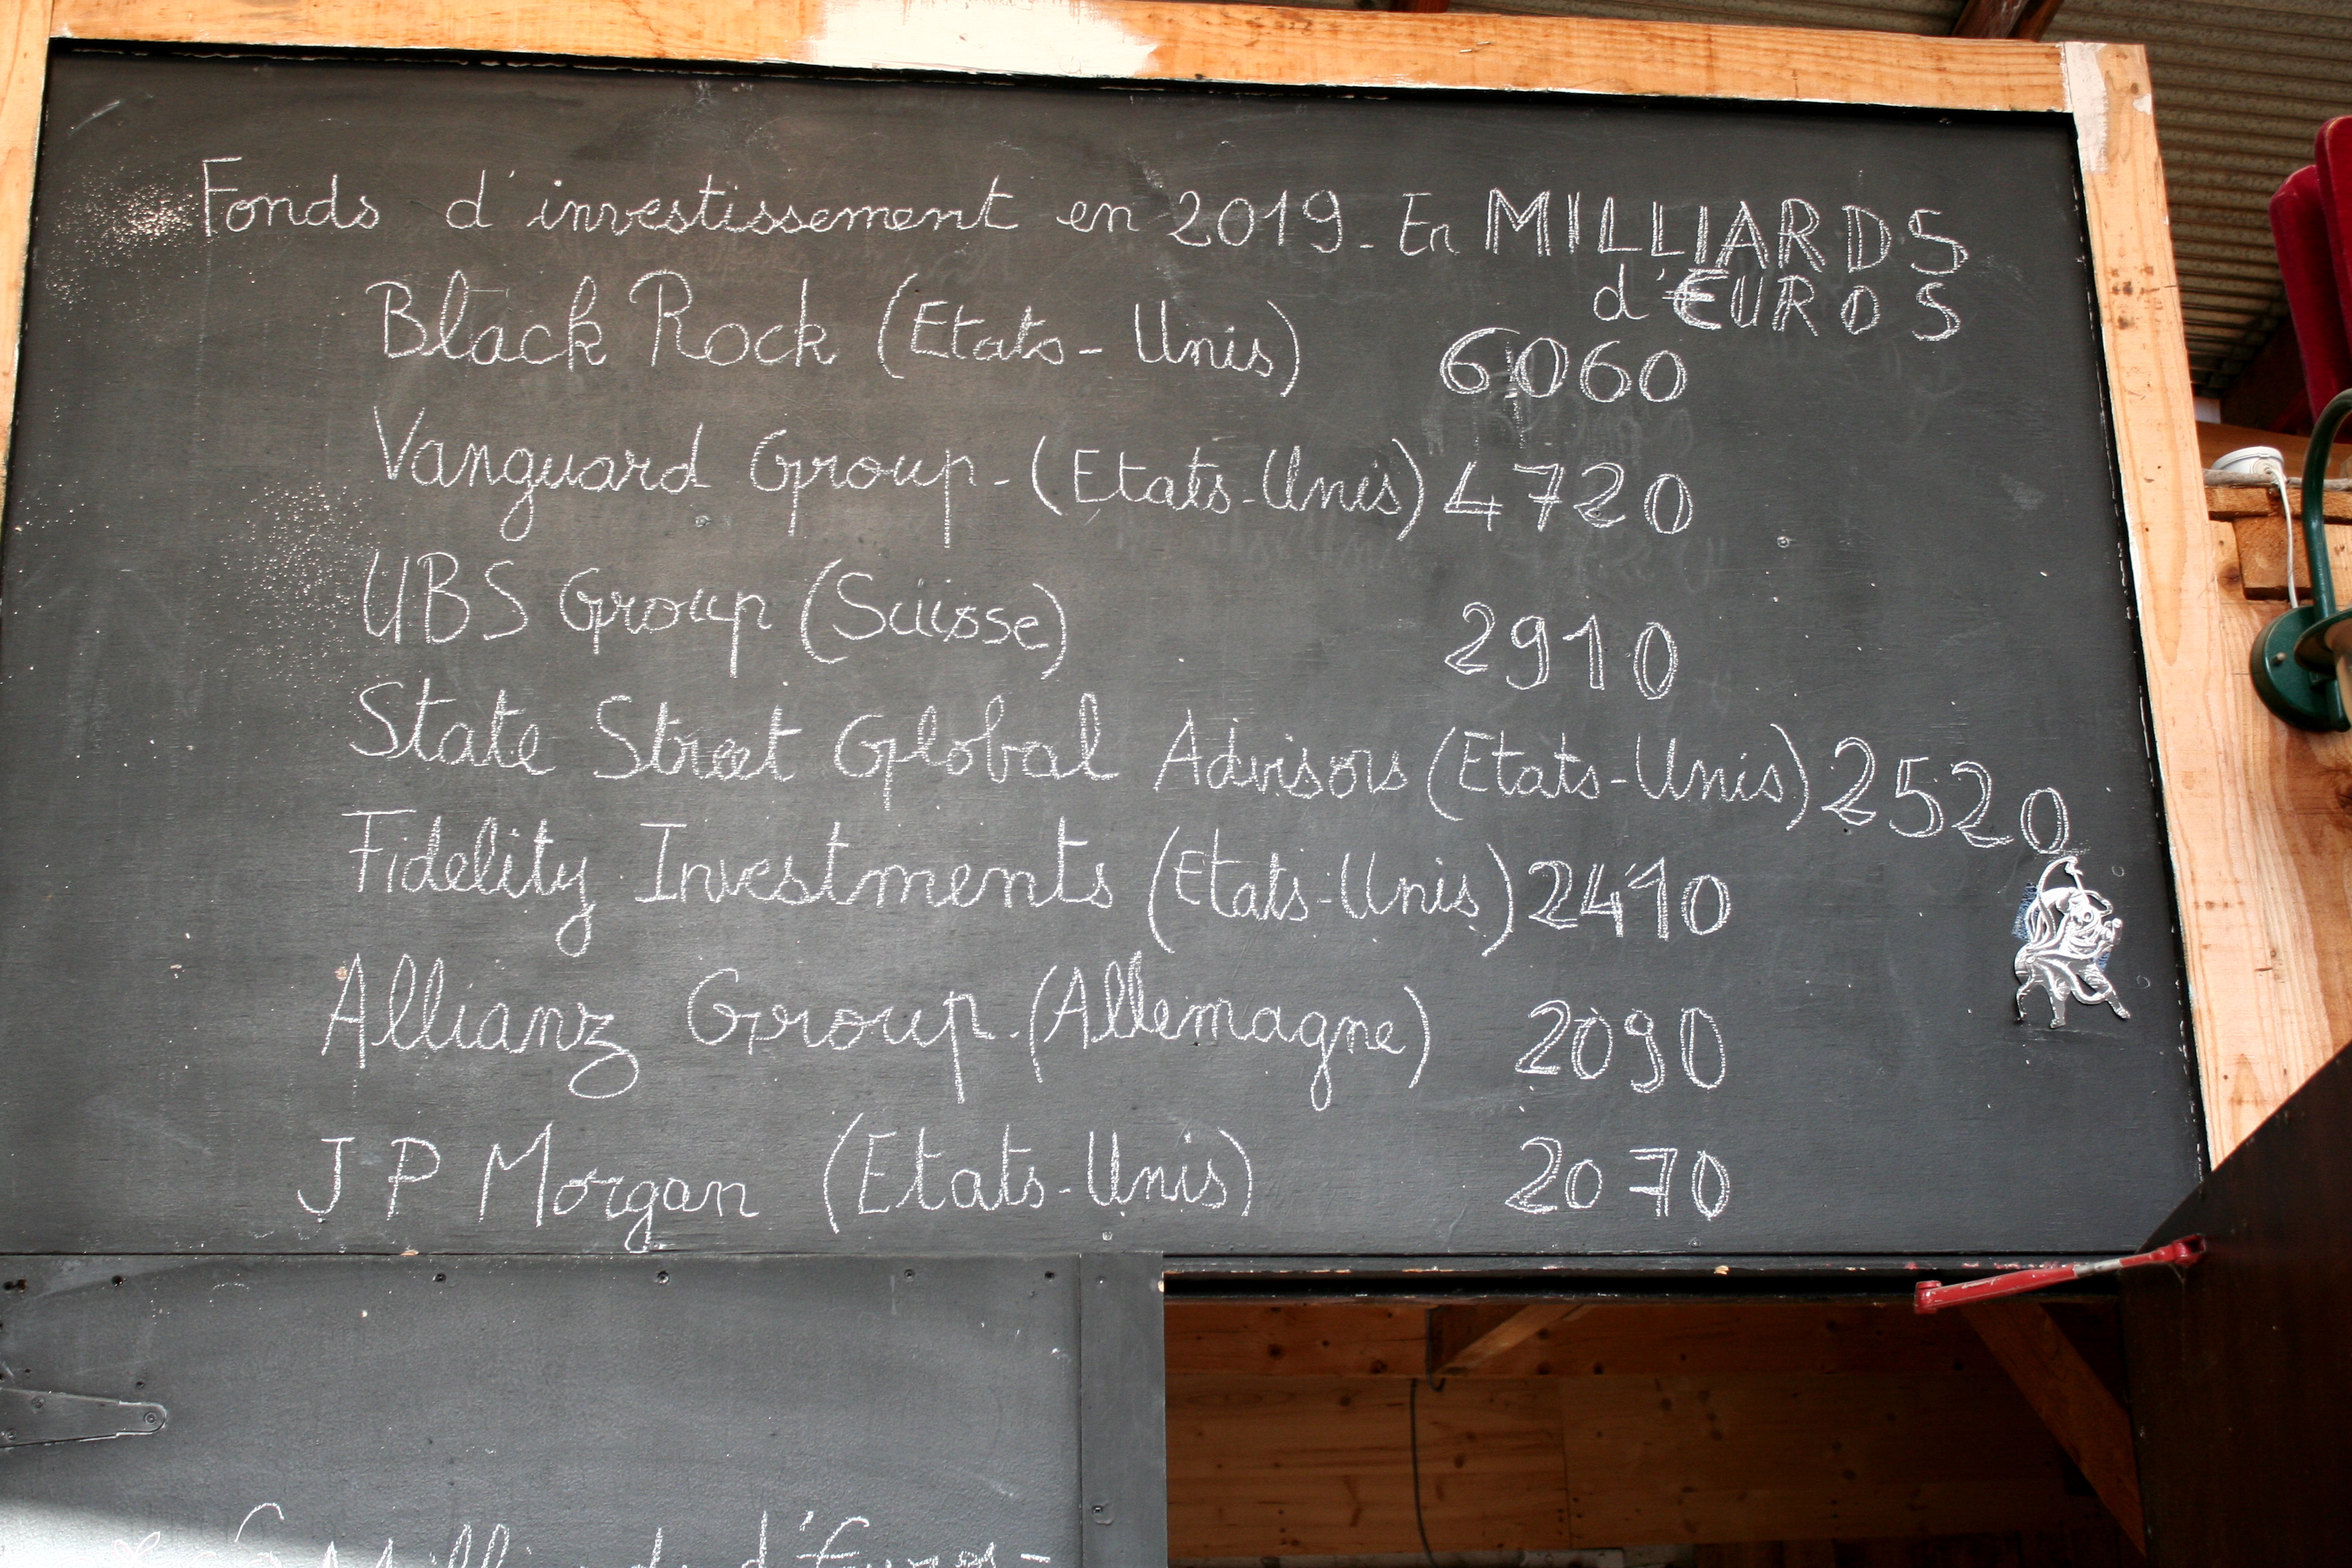 Fonds d'investissement en 2019 - En MILLIARDS
d'€UROS
Black Rock (Etats-Unis) 6060
Vanguard Group - (Etats-Unis) 4720
UBS Group (Suisse) 2910
State Street Global Advisors (Etats-Unis) 2520
Fidelity Investments (Etats-Unis) 2410
Allianz Group - (Allemagne) 2090
J P Morgan (Etats-Unis) 2070
d'Euros -